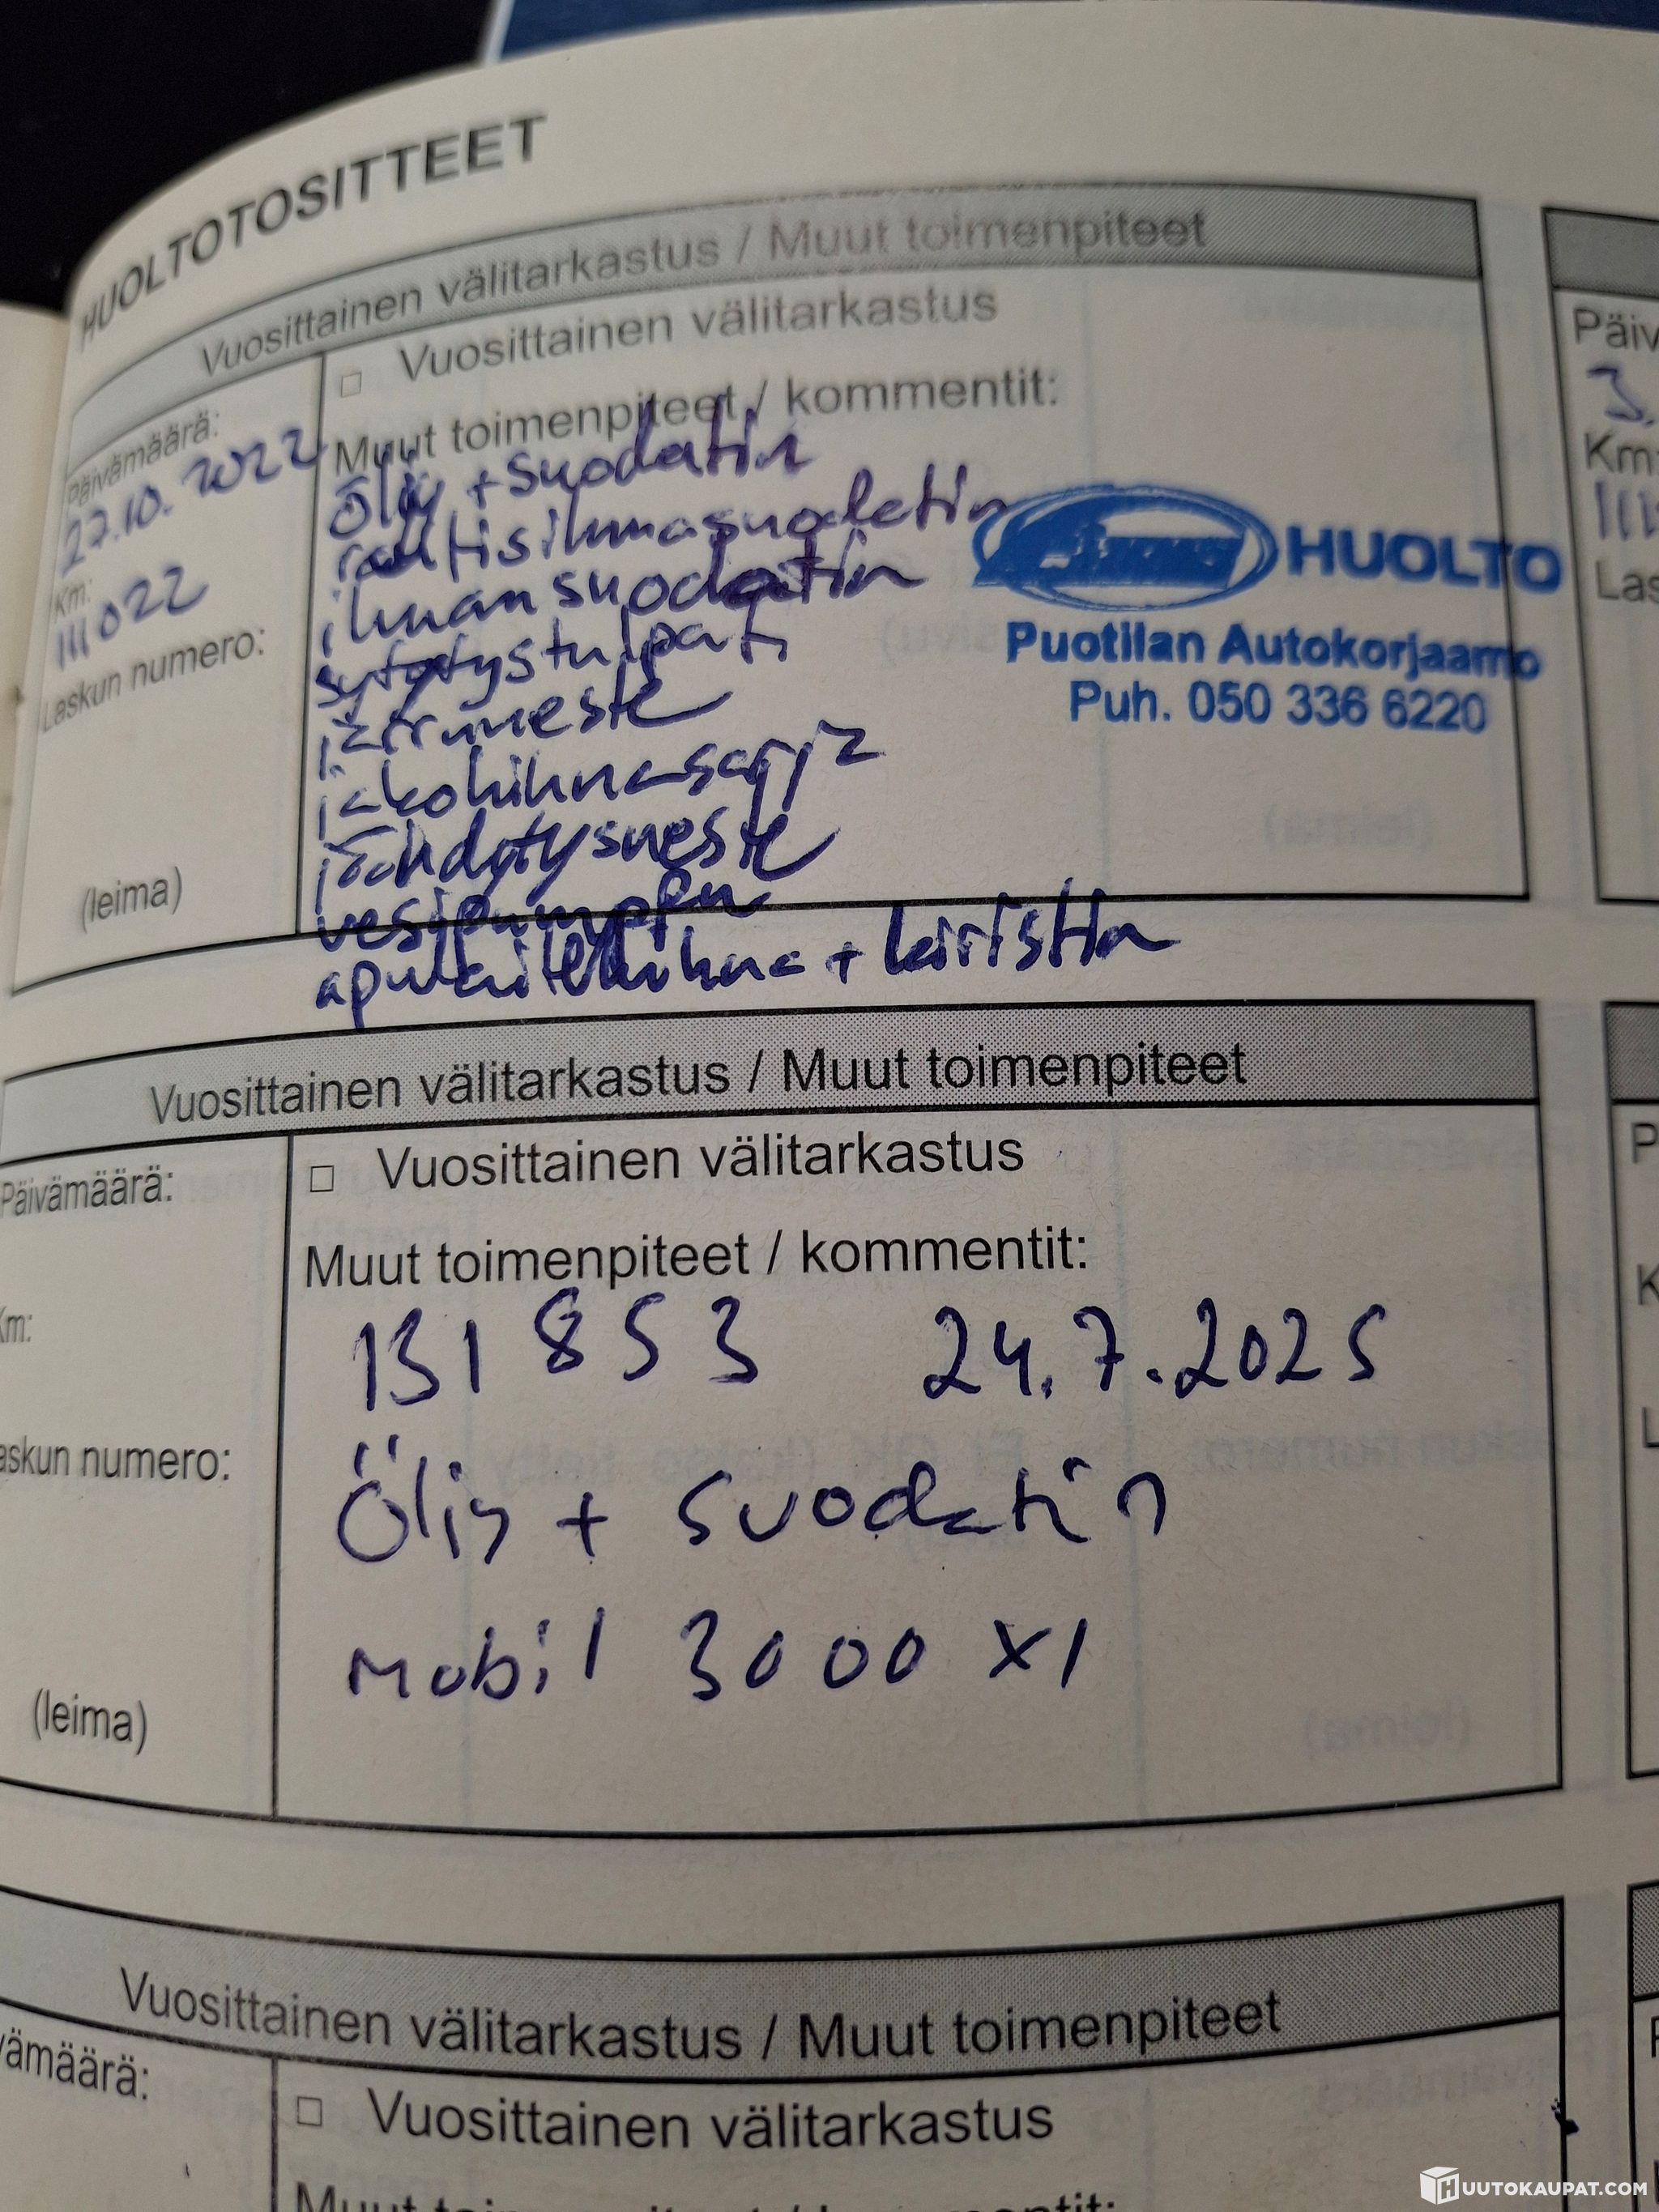 HUOLTOTOSITTEET
Vuosittainen välitarkastus / Muut toimenpiteet
Päivämäärä:
27.10.2022
Km:
111022
Laskun numero:
(leima)
□ Vuosittainen välitarkastus
Muut toimenpiteet / kommentit:
öljy + suodatin
raitisilmasuodatin
ilmansuodatin
sytytystulpat
jarruneste
jakohihnasarja
jäähdytysneste
vesipumppu
apulaitehihna + kiristin
HUOLTO
Puotilan Autokorjaamo
Puh. 050 336 6220
Päiv
3.
Km:
111
Las
Vuosittainen välitarkastus / Muut toimenpiteet
Päivämäärä:
Km:
askun numero:
(leima)
□ Vuosittainen välitarkastus
Muut toimenpiteet / kommentit:
131 853 24.7.2025
Öljy + suodatin
mobil 3000 x1
P
K
L
Vuosittainen välitarkastus / Muut toimenpiteet
vämäärä:
□ Vuosittainen välitarkastus
Muut toimenpiteet / kommentit:
HUUTOKAUPAT.COM